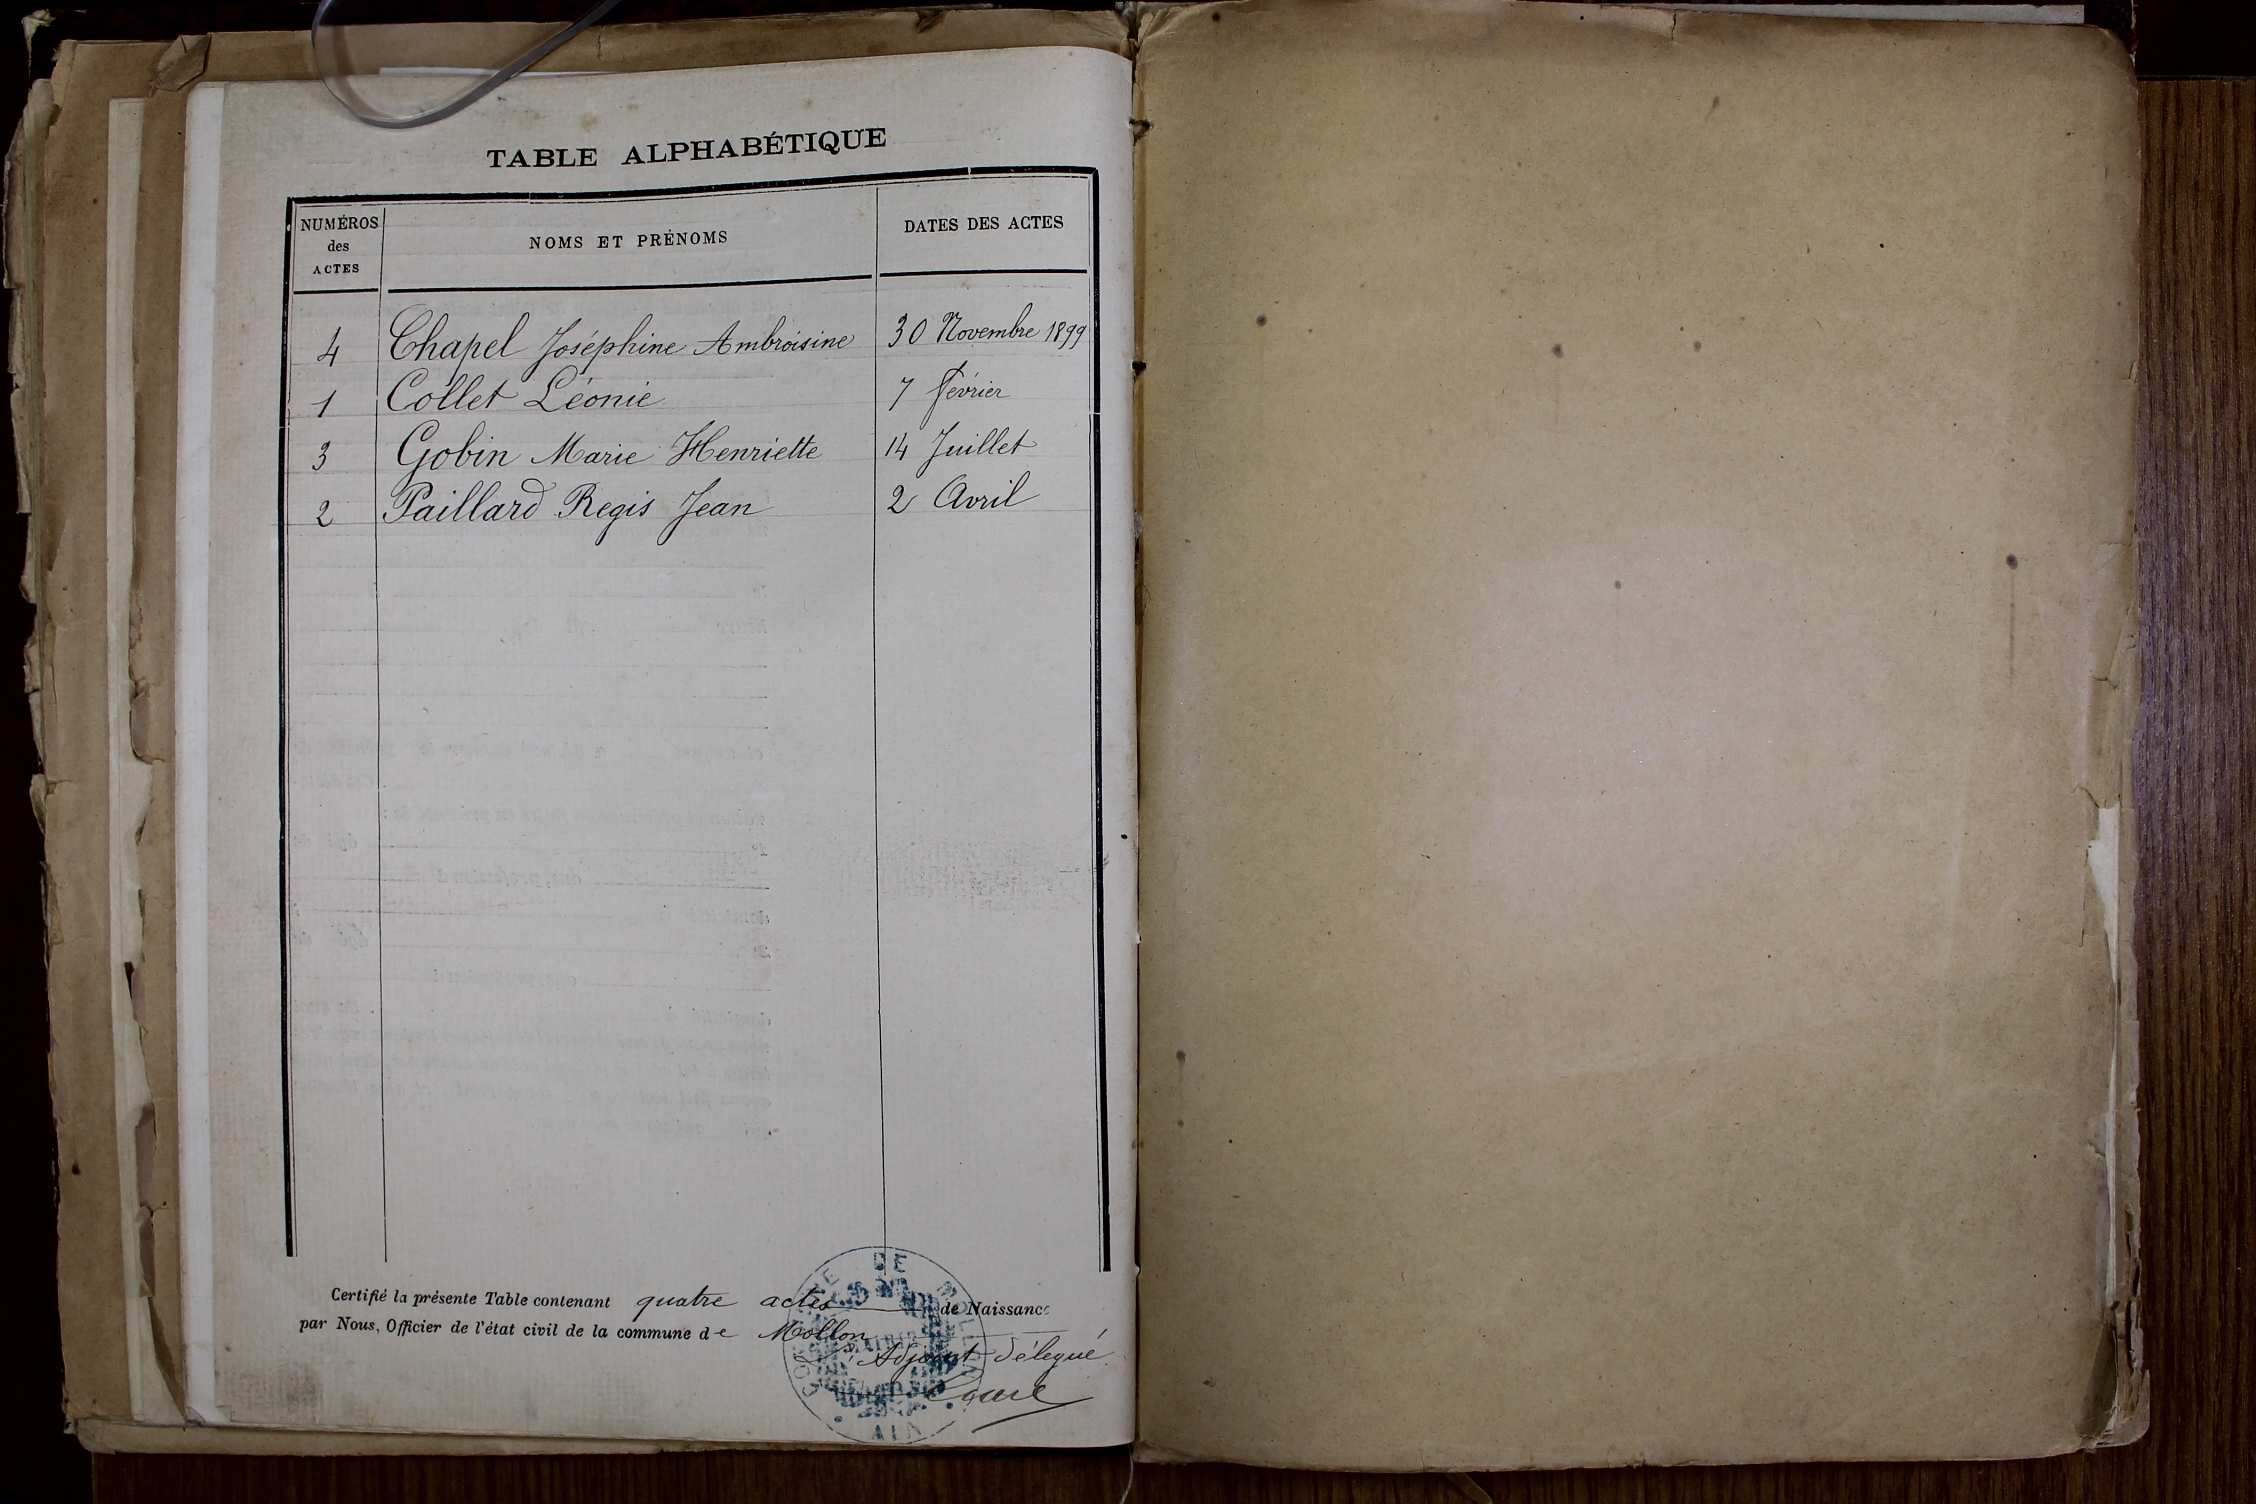 TABLE ALPHABÉTIQUE
NUMÉROS des ACTES NOMS ET PRÉNOMS DATES DES ACTES
4 Chapel Joséphine Ambroisine 30 Novembre 1899
1 Collet Léonie 7 février
3 Gobin Marie Henriette 14 Juillet
2 Paillard Regis Jean 2 Avril
Certifié la présente Table contenant quatre actes de Naissance
par Nous, Officier de l'état civil de la commune de Mollon
L'Adjoint délégué
COMMUNE DE MOLLON
AIN